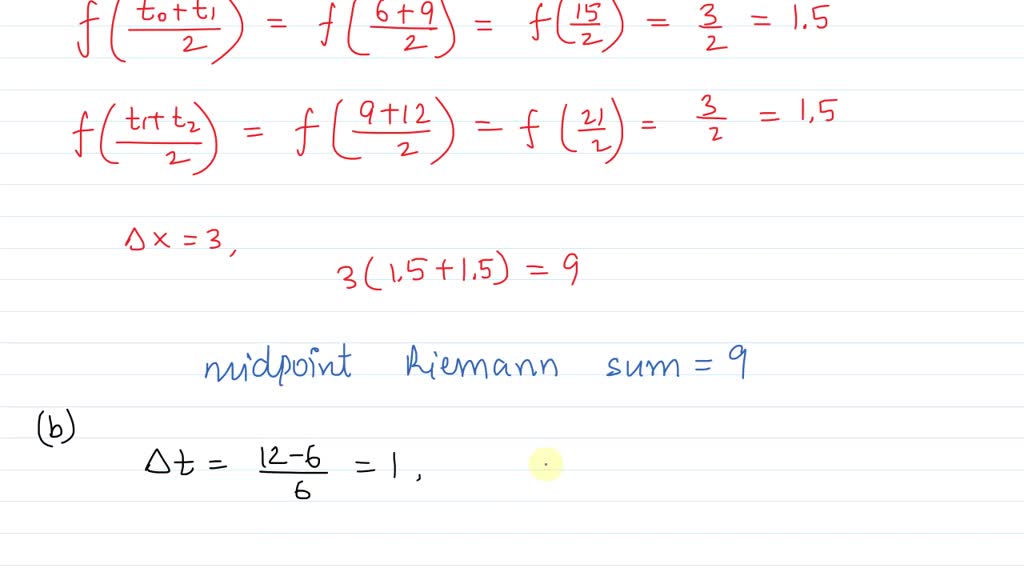 f((t₀+t₁)/2) = f((6+9)/2) = f(15/2) = 3/2 = 1.5
f((t₁+t₂)/2) = f((9+12)/2) = f(21/2) = 3/2 = 1,5
Δx = 3,
3(1.5+1.5) = 9
midpoint Riemann sum = 9
(b)
Δt = (12-6)/6 = 1,